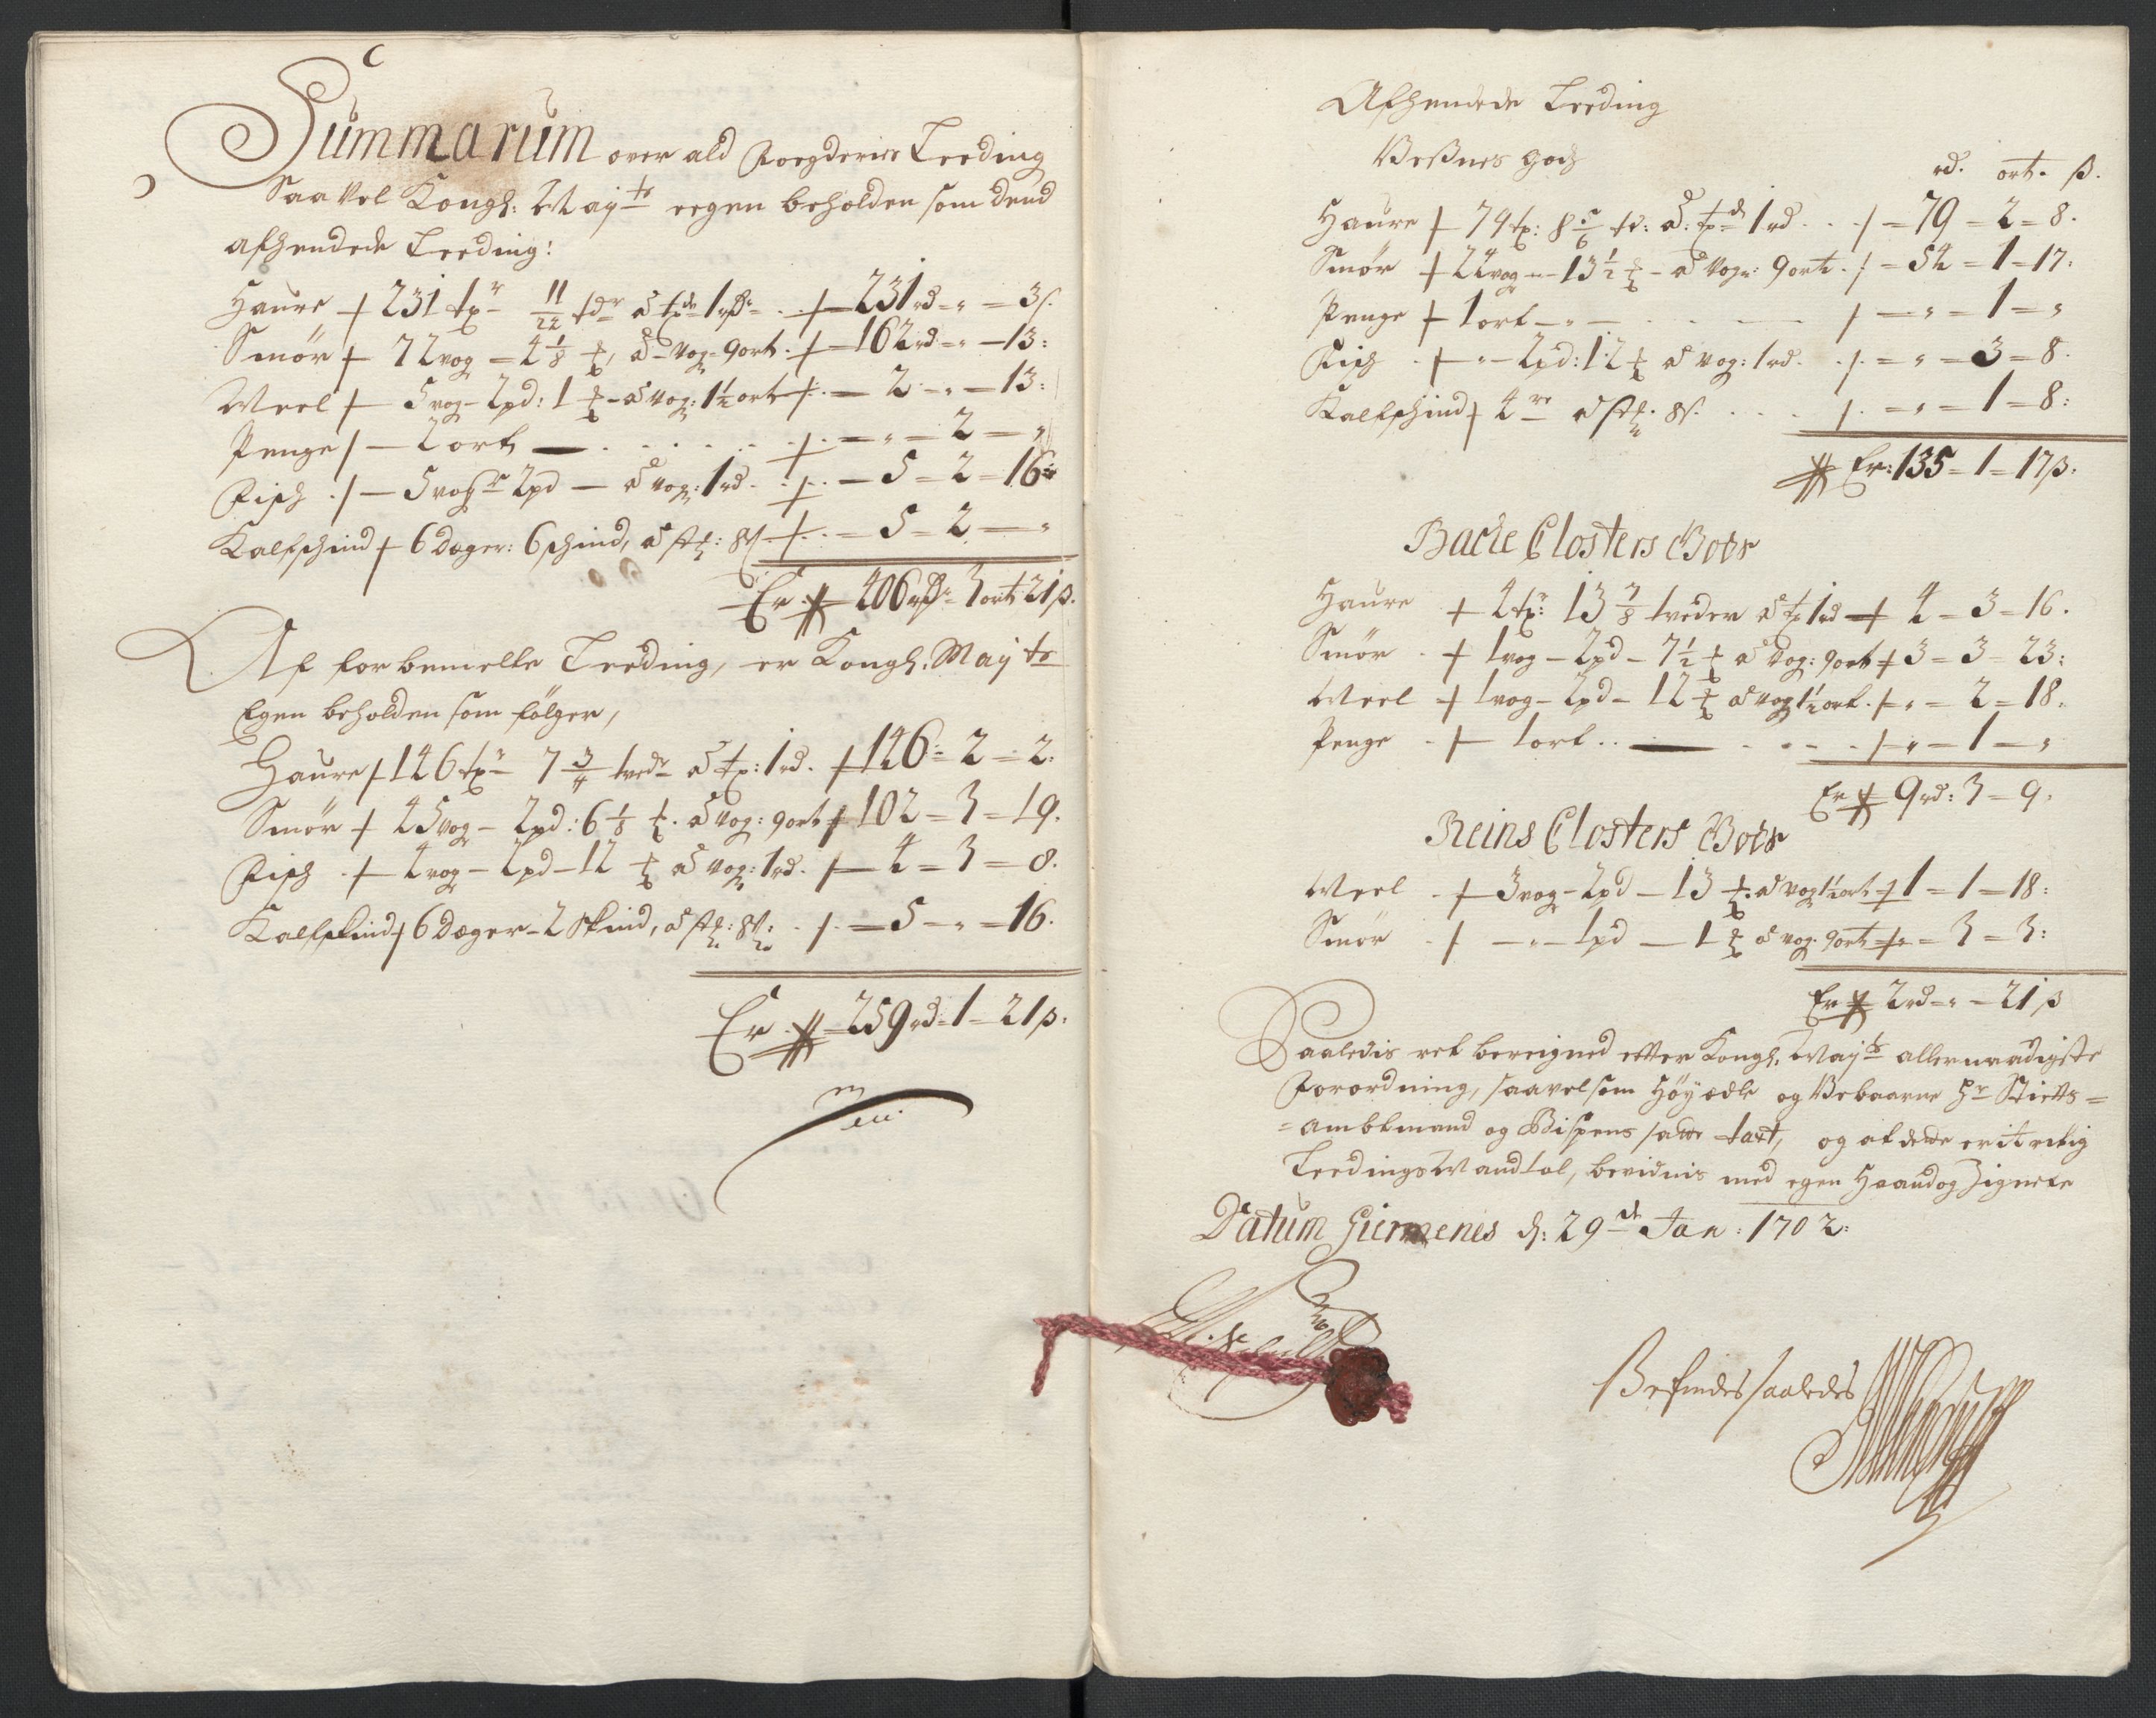 Summarum over ald Foegderies Leeding
Saa Vel Kongl: May:ts eegen beholden som dend
afhendede Leeding:
Haure + 231 tp:r 11/22 td:r à tp:de 1 rdr - + 231 rd - " - 3 s.
Smör + 72 vog - 4 1/8 à - vog - 9 ort + 162 rd - " - 13:
Meel + 5 vog - 2 pd: 1 - à vog: 1½ ort + - 2 - " - 13:
Penge / - 2 ort - + - " - 2 - "
Fisch / - 5 vog 2 pd - à vog: 1 rd - + - 5 - 2 - 16
Kalfschind + 6 Deger: 6 schind, à st: 8 s + - 5 - 2 - "
Er 406 rdr 3 ort 21 ß.
Af forbemelte Leeding, er Kongl. May:ts
Egen beholden som fölger,
Haure / 146 tp:r 7 3/4 wedr à tp: 1 rd. + 146 - 2 - 2.
Smör + 45 vog - 2 pd: 6 1/8 à vog: 9 ort + 102 - 3 - 19.
Fisch + 4 vog - 2 pd - 12 à vog: 1 rd. + 4 - 3 - 8.
Kalfskind + 6 Deger - 2 Skind, à st: 8 s: / - 5 - " - 16.
Er 259 rd - 1 - 21 ß:
Afhendede Leeding
Vessnes Godz
rd. ort. ß.
Haure + 79 tp: 8 5/6 w: à: tp:de 1 rd / - 79 - 2 - 8.
Smör + 24 vog - " - 13½ - à vog: 9 ort / - 54 - 1 - 17:
Penge + 1 ort - " - / - " - 1 - "
Fisch + " - 2 pd: 12 à vog: 1 rd. / - " - 3 - 8.
Kalfschind + 4 à st. 8 s. / - " - 1 - 8:
Er: 135 - 1 - 17 ß:
Backe Closters Goedz
Haure + 4 tp: 13 7/8 weder à tp 1 rd + 4 - 3 - 16.
Smör + 1 vog - 2 pd - 7½ à vog: 9 ort + 3 - 3 - 23:
Meel + 1 vog - 2 pd - 12 à vog 1½ ort / " - 2 - 18.
Penge + 1 ort - / " - 1 - "
Er 9 rd: 3 - 9.
Reins Closters Goedz
Meel + 3 vog - 2 pd - 13 à vog 1½ ort + 1 - 1 - 18:
Smör / - " - 1 pd - 1 à vog 9 ort + " - 3 - 3:
Er 2 rd - " - 21 ß
Saaledis ret bereigned effter Kongl. May:ts allernaadigste
Forordning, saavelsom Höyædle og Velbaarne Hr Stiffts-
=ambtmand og Bispens satte taxt, og at dette er it rigtig
Leedings Mandtal, bevidnis med egen Haand og Zignete
Datum Giermenes d: 29:de Jan: 1702:
Befindes saaledes